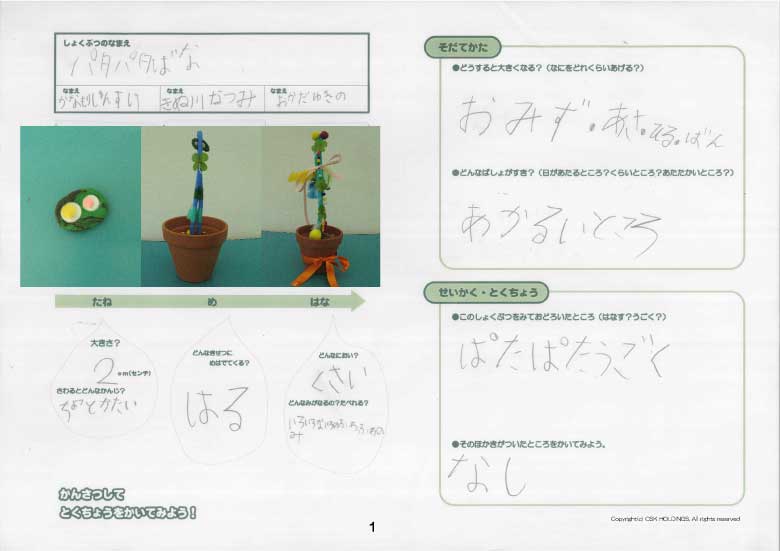 しょくぶつのなまえ
パタパタばな
なまえ
なまえ
なまえ
きぬ川なつみ
おかだゆきの
たね
め
はな
大きさ?
2
cm(センチ)
さわるとどんなかんじ?
ちょっとかたい
どんなきせつに
めはでてくる?
はる
どんなにおい?
くさい
どんなみがなるの?たべれる?
み
かんさつして
とくちょうをかいてみよう!
そだてかた
●どうすると大きくなる?(なにをどれくらいあげる?)
おみず。あさ。ひる。ばん
●どんなばしょがすき?(日があたるところ?くらいところ?あたたかいところ?)
あかるいところ
せいかく・とくちょう
●このしょくぶつをみておどろいたところ(はなす?うごく?)
ぱたぱたうごく
●そのほかきがついたところをかいてみよう。
なし
Copyright(c) CSK HOLDINGS, All rights reserved
1